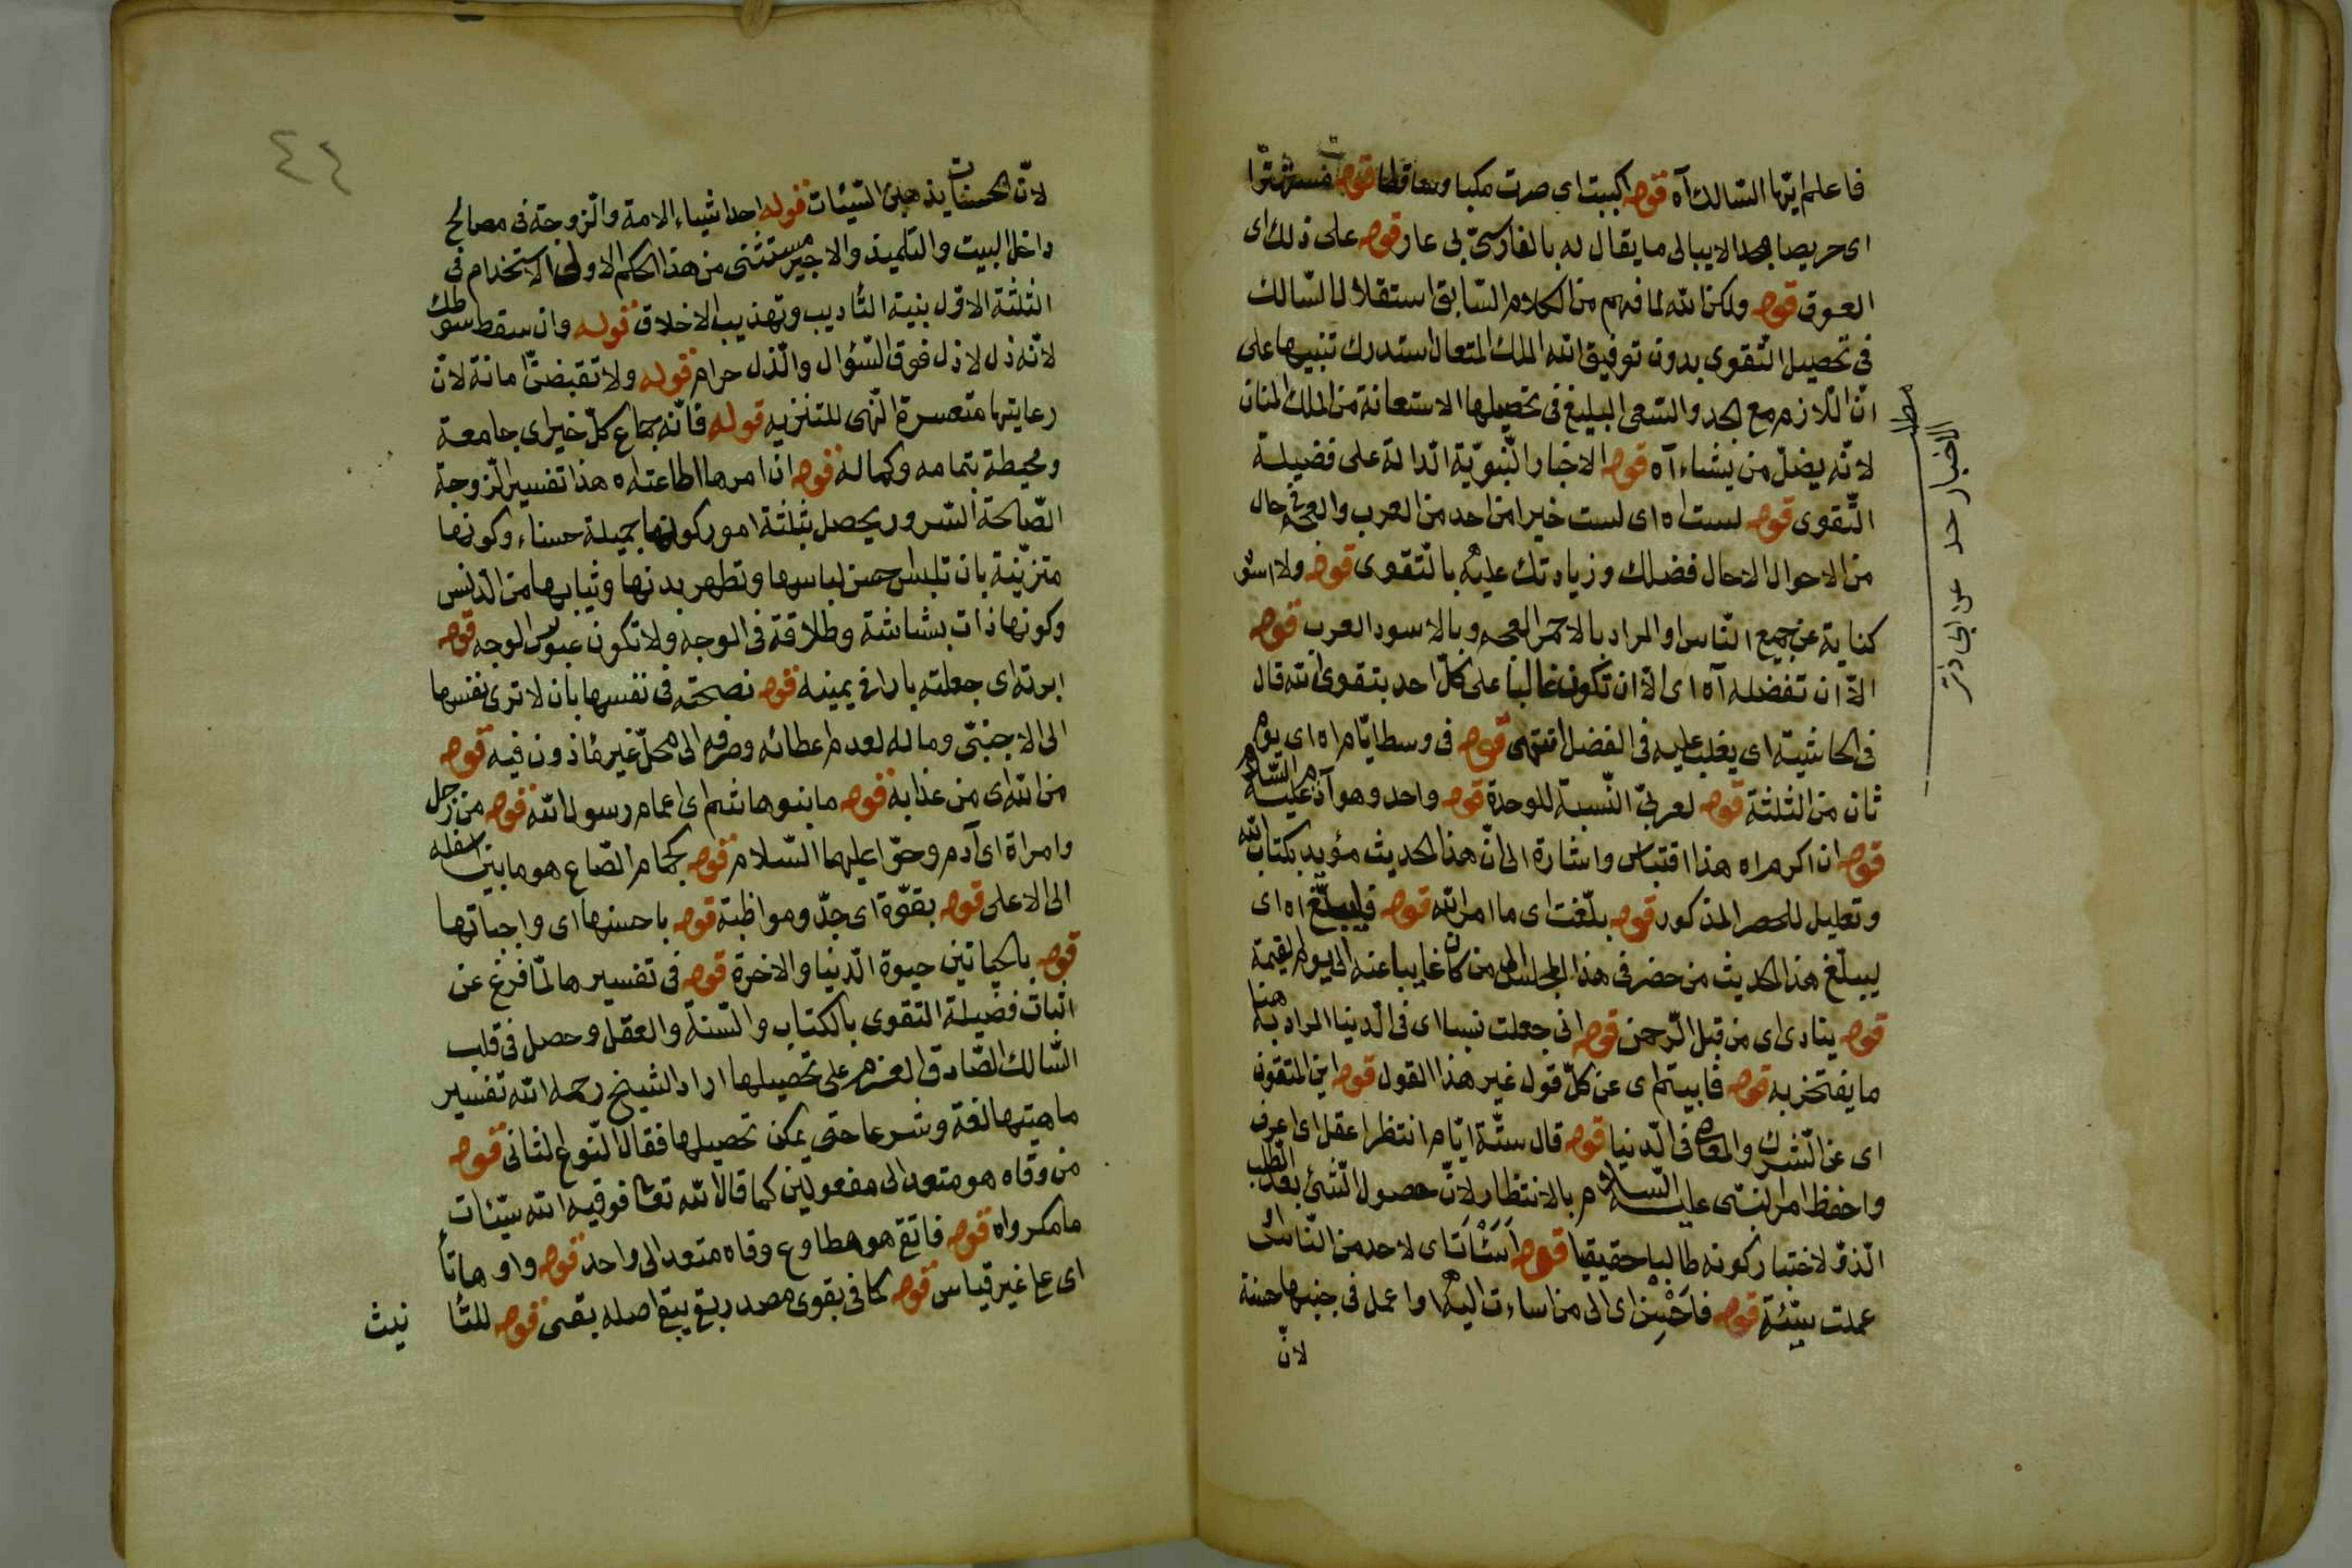 فاعلم ايّها السّالك آه قوله اكببت اى صرت مكبا وساقطا قوله مستهترا
اى حريصا بحد لا يبالى ما يقال له بالفارسىّ بى عار قوله على ذلك اى
العوق قوله ولكن الله لما فهم من الكلام السّابق استقلال السّالك
فى تحصيل التّقوى بدون توفيق الله الملك المتعال استدرك تنبيها على
انّ اللّازم مع الجد والسّعى البليغ فى تحصيلها الاستعانة من الملك المنان
لانّه يضلّ من يشاء آه قوله الاخبار النّبويّة الدالة على فضيلة
التّقوى قوله لست اه اى لست خيرا من احد من العرب والعجم فى حال
من الاحوال الا حال فضلك وزيادتك عليه بالتّقوى قوله ولا اسود
كناية عن جميع النّاس والمراد بالاحمر العجم وبالاسود العرب قوله
الّا ان تفضله آه اى الّا ان تكون غالبا على كلّ احد بتقوى الله قال
فى الحاشيّة اى يغلب عليه فى الفضل انتهى قوله فى وسط ايّام اه اى يوم
ثان من الثلثة قوله لعربىّ النّسبة للوحدة قوله واحد وهو آدم عليه السّلام
قوله ان اكرم اه هذا اقتباس واشارة الى انّ هذا الحديث مؤيد بكتاب الله
وتعليل للحصر المذكور قوله بلّغت اى ما امر الله قوله فليبلّغ اه اى
ليبلّغ هذا الحديث من حضر فى هذا المجلس الى من كان غايبا عنه الى يوم القيمة
قوله ينادى اى من قبل الرّحمن قوله انى جعلت نسبا اى فى الدّنيا المراد به هنا
ما يفتخر به قوله فابيتم اى عن كلّ قول غير هذا القول قوله اين المتّقون
اى عن الشّرك والمعاصى فى الدّنيا قوله قال ستّة ايّام انتظر اعقل اى اعرف
واحفظ امر النبّى عليه السّلام بالانتظار لانّ حصول الشّئ بعد الطّلب
الذّ او لاختبار كونه طالبا حقيقيا قوله اَسَئْاتَ اى لاحد من النّاس
عملت سيّئة قوله فاَحْسِنْ اى الى من اساءت اليه او اعمل فى جنبها حسنة
لانّ
مطلب
الاخبار حد عن ابى ذر
٤٤
لانّ الحسنات يذهبن السّيّئات قوله احدا شياء الامة والزوجة فى مصالح
داخل البيت والتلميذ والاجير مستثنى من هذا الحكم الاولى الاستخدام فى
الثلثة الاوّل بنية التأديب وتهذيب الاخلاق قوله وان سقط سوطك
لانّه ذل لا ذل فوق السّؤال والذّل حرام قوله ولا تقبضنّ امانة لانّ
رعايتها متعسرة النّهى للتنزيه قوله فانّه جماع كلّ خير اى جامعة
ومحيطة بتمامه وكماله قوله ان امرها اطاعته اه هذا تفسير الزّوجة
الصّالحة السّرور يحصل بثلثة امور كونها جميلة حسناء وكونها
متزيّنة بان تلبس حسن لباسها وتطهر بدنها وثيابها من الدّنس
وكونها ذات بشاشة وطلاقة فى الوجه ولا تكون عبوس الوجه قوله
ابرته اى جعلته بارا فى يمينه قوله نصحته فى نفسها بان لا ترى نفسها
الى الاجنبىّ وماله لعدم اعطائه وصرفه الى محلّ غير مأذون فيه قوله
من الله اى من عذابه قوله ما بنو هاشم اى اعمام رسول الله قوله من رجل
وامراة اى آدم وحوّا عليهما السّلام قوله كجمام الصّاع هو ما بين اسفله
الى الاعلى قوله بقوّة اى جدّ ومواظبة قوله باحسنها اى واجباتها
قوله بالحياتين حيوة الدّنيا والاخرة قوله فى تفسيرها لمّا فرغ عن
اثبات فضيلة التقوى بالكتاب والسّنة والعقل وحصل فى قلب
السّالك الصّادق العزم على تحصيلها اراد الشيخ رحمه الله تفسير
ماهيتها لغة وشرعا حتى يمكن تحصيلها فقال النّوع الثانى قوله
من وقاه هو متعد الى مفعولين كما قال الله تعالى فوقيه الله سيّئات
ما مكروا اه قوله فاتقى هو مطاوع وقاه متعد الى واحد قوله واوها تأ
اى على غير قياس قوله كما فى بقوى مصدر بقى يبقى اصله بقى قوله للتأ
نيث